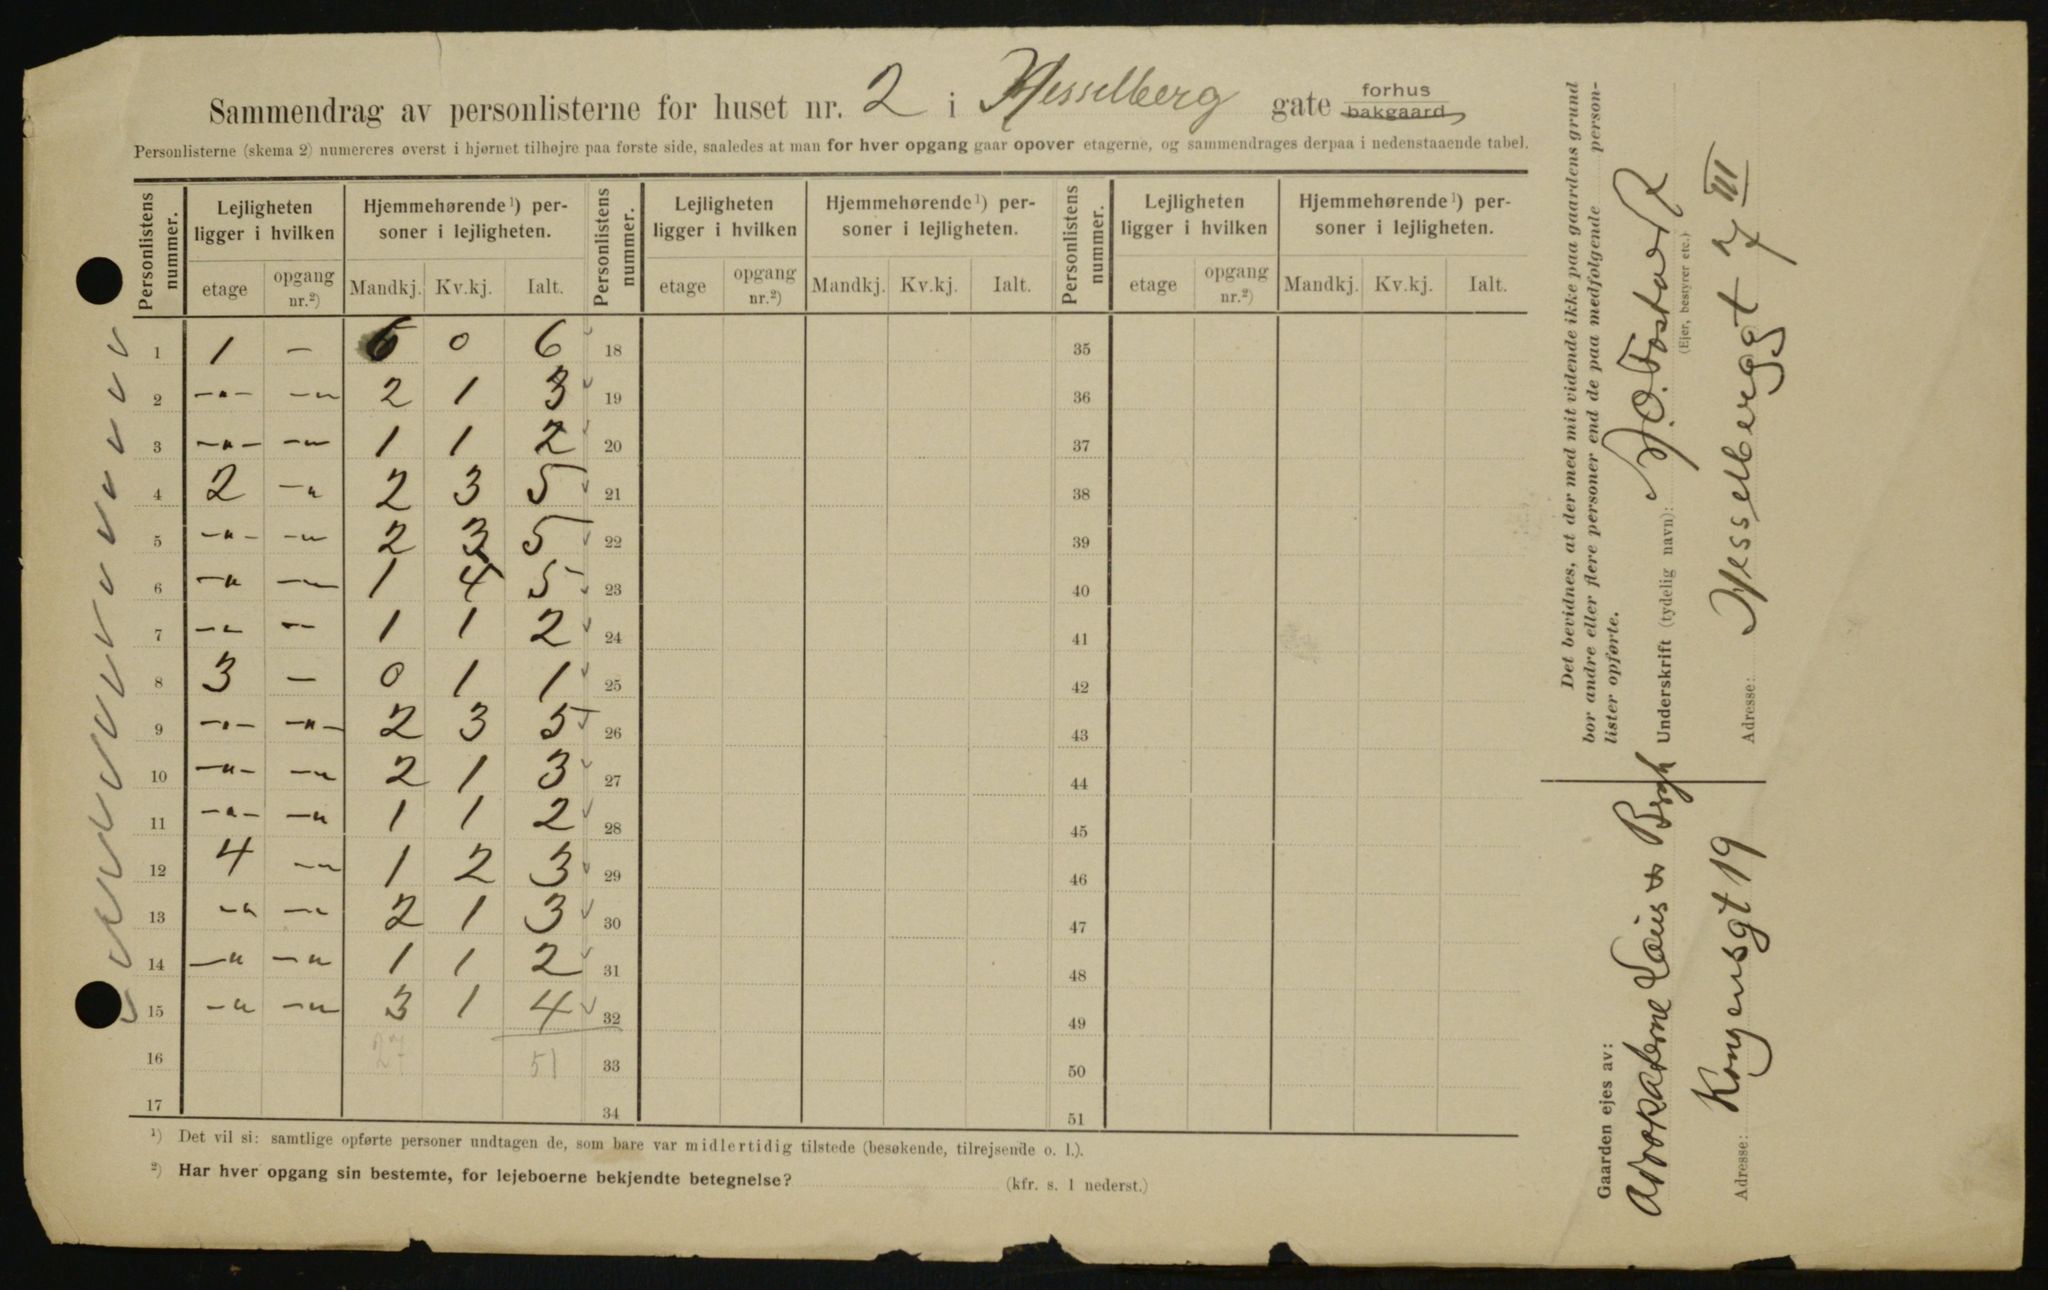 Sammendrag av personlisterne for huset nr. 2 i Hesselberg gate forhus bakgaard
Personlisterne (skema 2) numereres øverst i hjørnet tilhøjre paa første side, saaledes at man for hver opgang gaar opover etagerne, og sammendrages derpaa i nedenstaaende tabel.
Personlistens nummer. Lejligheten ligger i hvilken Hjemmehørende ¹) personer i lejligheten. Personlistens nummer. Lejligheten ligger i hvilken Hjemmehørende ¹) personer i lejligheten. Personlistens nummer. Lejligheten ligger i hvilken Hjemmehørende ¹) personer i lejligheten.
etage opgang nr.²) Mandkj. Kv.kj. Ialt. etage opgang nr.²) Mandkj. Kv.kj. Ialt. etage opgang nr.²) Mandkj. Kv.kj. Ialt.
1 1 — 6 0 6 18 35
2 —"— —" 2 1 3 19 36
3 —"— —" 1 1 2 20 37
4 2 —" 2 3 5 21 38
5 —"— —" 2 3 5 22 39
6 —" —" 1 4 5 23 40
7 —" —" 1 1 2 24 41
8 3 — 0 1 1 25 42
9 —"— —"— 2 3 5 26 43
10 —"— —" 2 1 3 27 44
11 —"— —" 1 1 2 28 45
12 4 —" 1 2 3 29 46
13 —" —" 2 1 3 30 47
14 —" —" 1 1 2 31 48
15 —" —" 3 1 4 32 49
16 27 51 33 50
17 34 51
¹) Det vil si: samtlige opførte personer undtagen de, som bare var midlertidig tilstede (besøkende, tilrejsende o. l.).
²) Har hver opgang sin bestemte, for lejeboerne bekjendte betegnelse? (kfr. s. 1 nederst.)
Det bevidnes, at der med mit vidende ikke paa gaardens grund
bor andre eller flere personer end de paa medfølgende person-
lister opførte.
Underskrift (tydelig navn):
(Ejer, bestyrer etc.)
Adresse: Hesselberggt 7 III
Gaarden ejes av:
Advokaterne & Bergh
Adresse: Kongensgt 19